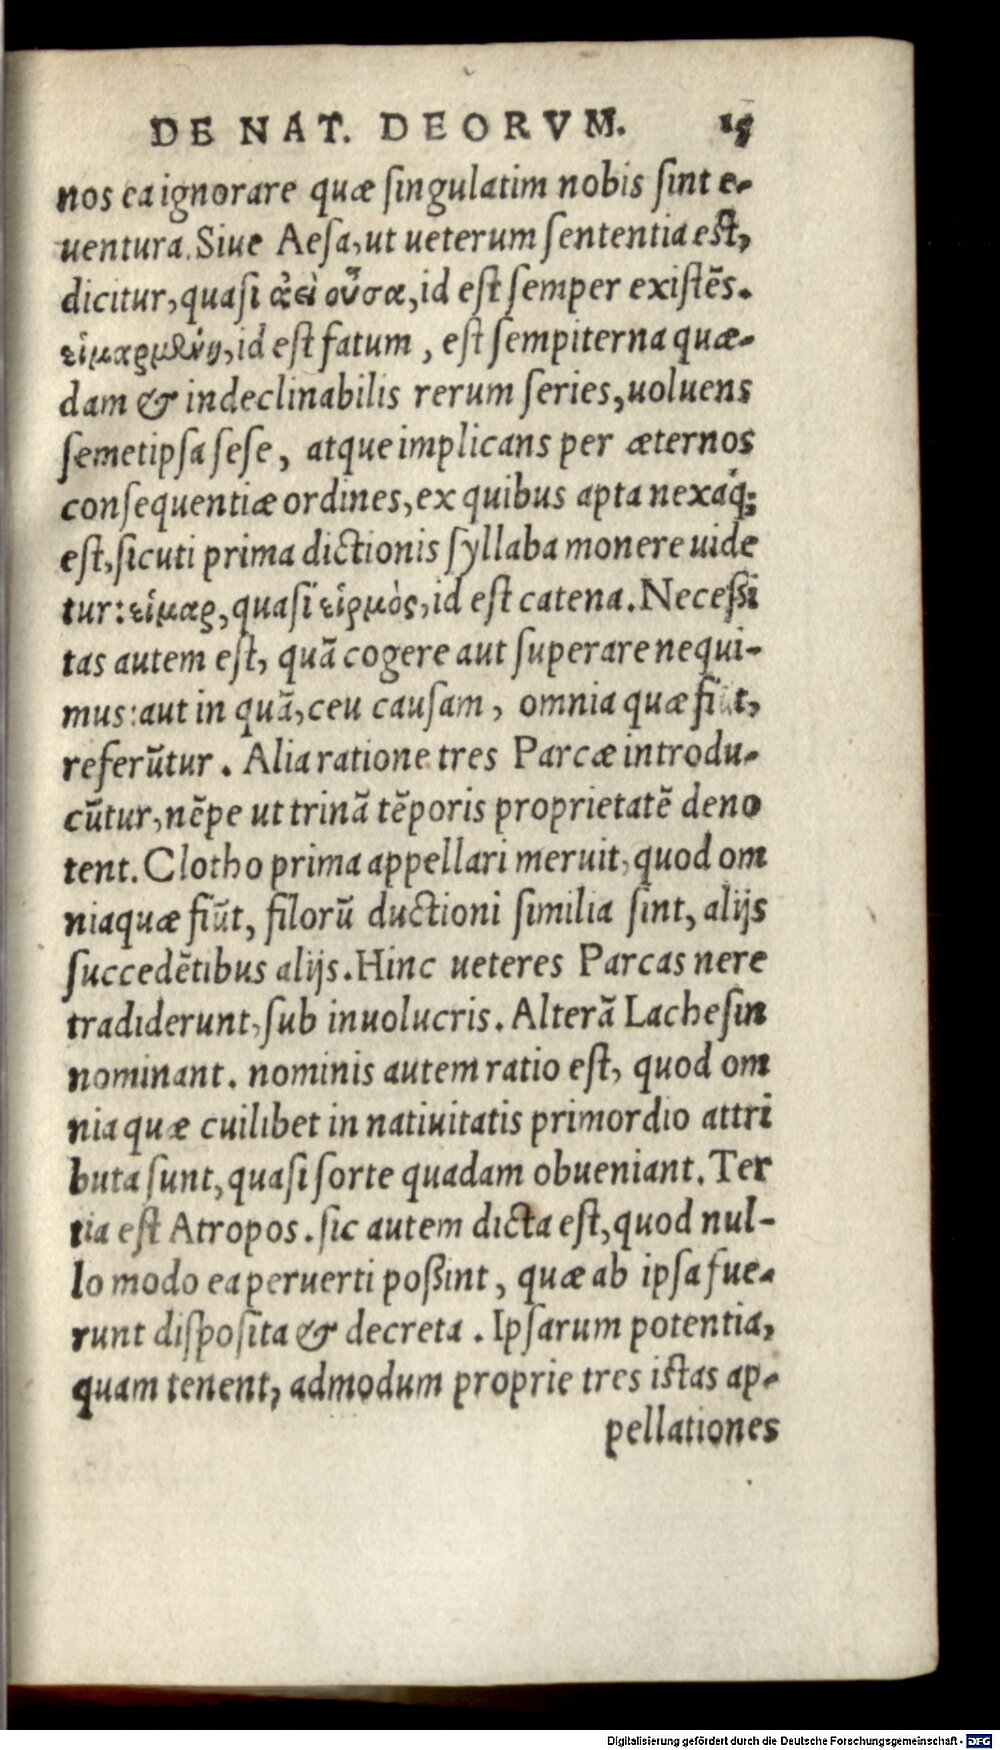 DE NAT. DEORVM. 15
nos ea ignorare quæ ſingulatim nobis ſint e-
uentura. Siue Aeſa, ut ueterum ſententia eſt,
dicitur, quaſi ἀεὶ οὖσα, id eſt ſemper exiſtẽs.
εἱμαρμένη, id eſt fatum, eſt ſempiterna quæ-
dam & indeclinabilis rerum ſeries, uoluens
ſemetipſa ſeſe, atque implicans per æternos
conſequentiæ ordines, ex quibus apta nexaq́;
eſt, ſicuti prima dictionis ſyllaba monere uide
tur: εἱμαρ, quaſi εἱρμὸς, id eſt catena. Neceſſi
tas autem eſt, quã cogere aut ſuperare nequi-
mus: aut in quã, ceu cauſam, omnia quæ fiũt,
referũtur. Alia ratione tres Parcæ introdu-
cũtur, nẽpe ut trinã tẽporis proprietatẽ deno
tent. Clotho prima appellari meruit, quod om
nia quæ fiũt, filorũ ductioni ſimilia ſint, alijs
ſuccedẽtibus alijs. Hinc ueteres Parcas nere
tradiderunt, ſub inuolucris. Alterã Lacheſin
nominant. nominis autem ratio eſt, quod om
nia quæ cuilibet in natiuitatis primordio attri
buta ſunt, quaſi ſorte quadam obueniant. Ter
tia eſt Atropos. ſic autem dicta eſt, quod nul-
lo modo ea peruerti poßint, quæ ab ipſa fue-
runt diſpoſita & decreta. Ipſarum potentia,
quam tenent, admodum proprie tres iſtas ap-
pellationes
Digitalisierung gefördert durch die Deutsche Forschungsgemeinschaft - DFG